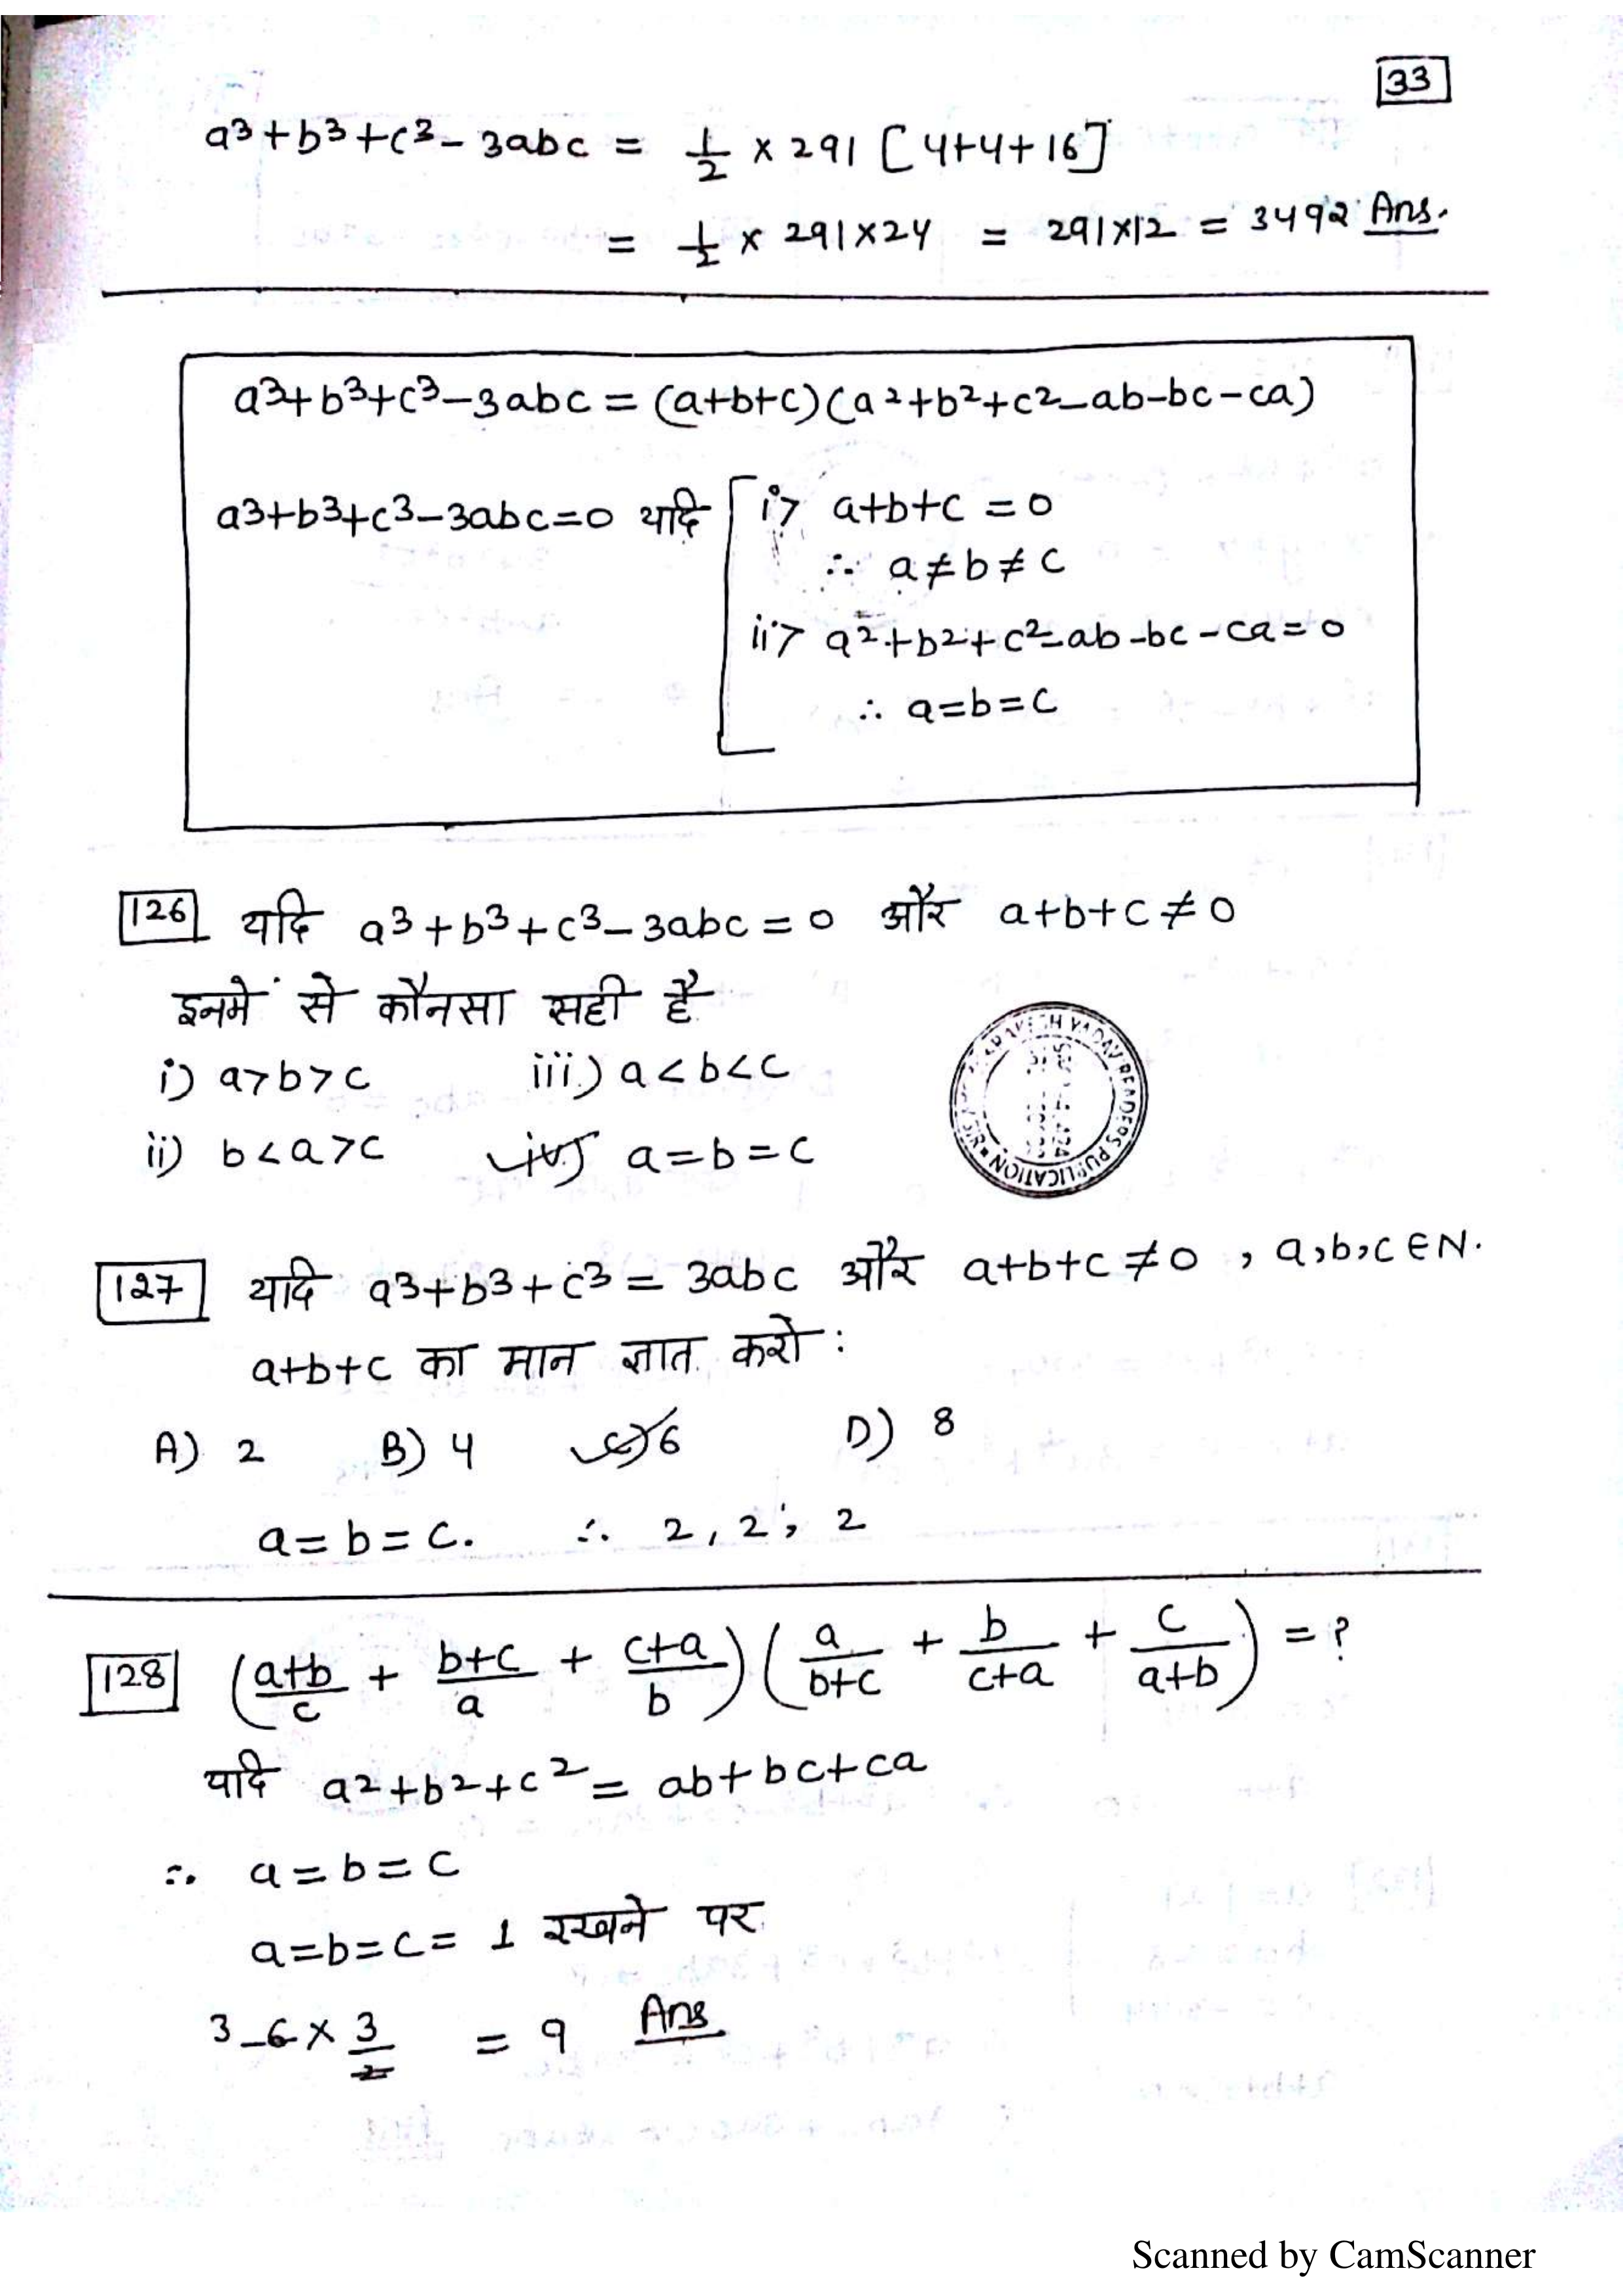 33
a³+b³+c³-3abc = 1/2 × 291 [4+4+16]
= 1/2 × 291×24 = 291×12 = 3492 Ans.
a³+b³+c³-3abc = (a+b+c)(a²+b²+c²-ab-bc-ca)
a³+b³+c³-3abc=0 यदि i> a+b+c = 0
∴ a≠b≠c
ii> a²+b²+c²-ab-bc-ca=0
∴ a=b=c
126 यदि a³+b³+c³-3abc = 0 और a+b+c ≠ 0
इनमें से कौनसा सही है
i) a>b>c iii) a<b<c
ii) b<a>c iv) a=b=c
YADAV READERS PUBLICATION
127 यदि a³+b³+c³ = 3abc और a+b+c ≠ 0 , a,b,c∈N.
a+b+c का मान ज्ञात करो :
A) 2 B) 4 C) 6 D) 8
a=b=c. ∴ 2, 2, 2
128 ((a+b)/c + (b+c)/a + (c+a)/b) (a/(b+c) + b/(c+a) + c/(a+b)) = ?
यदि a²+b²+c² = ab+bc+ca
∴ a=b=c
a=b=c= 1 रखने पर
3 6 × 3/2 = 9 Ans
Scanned by CamScanner